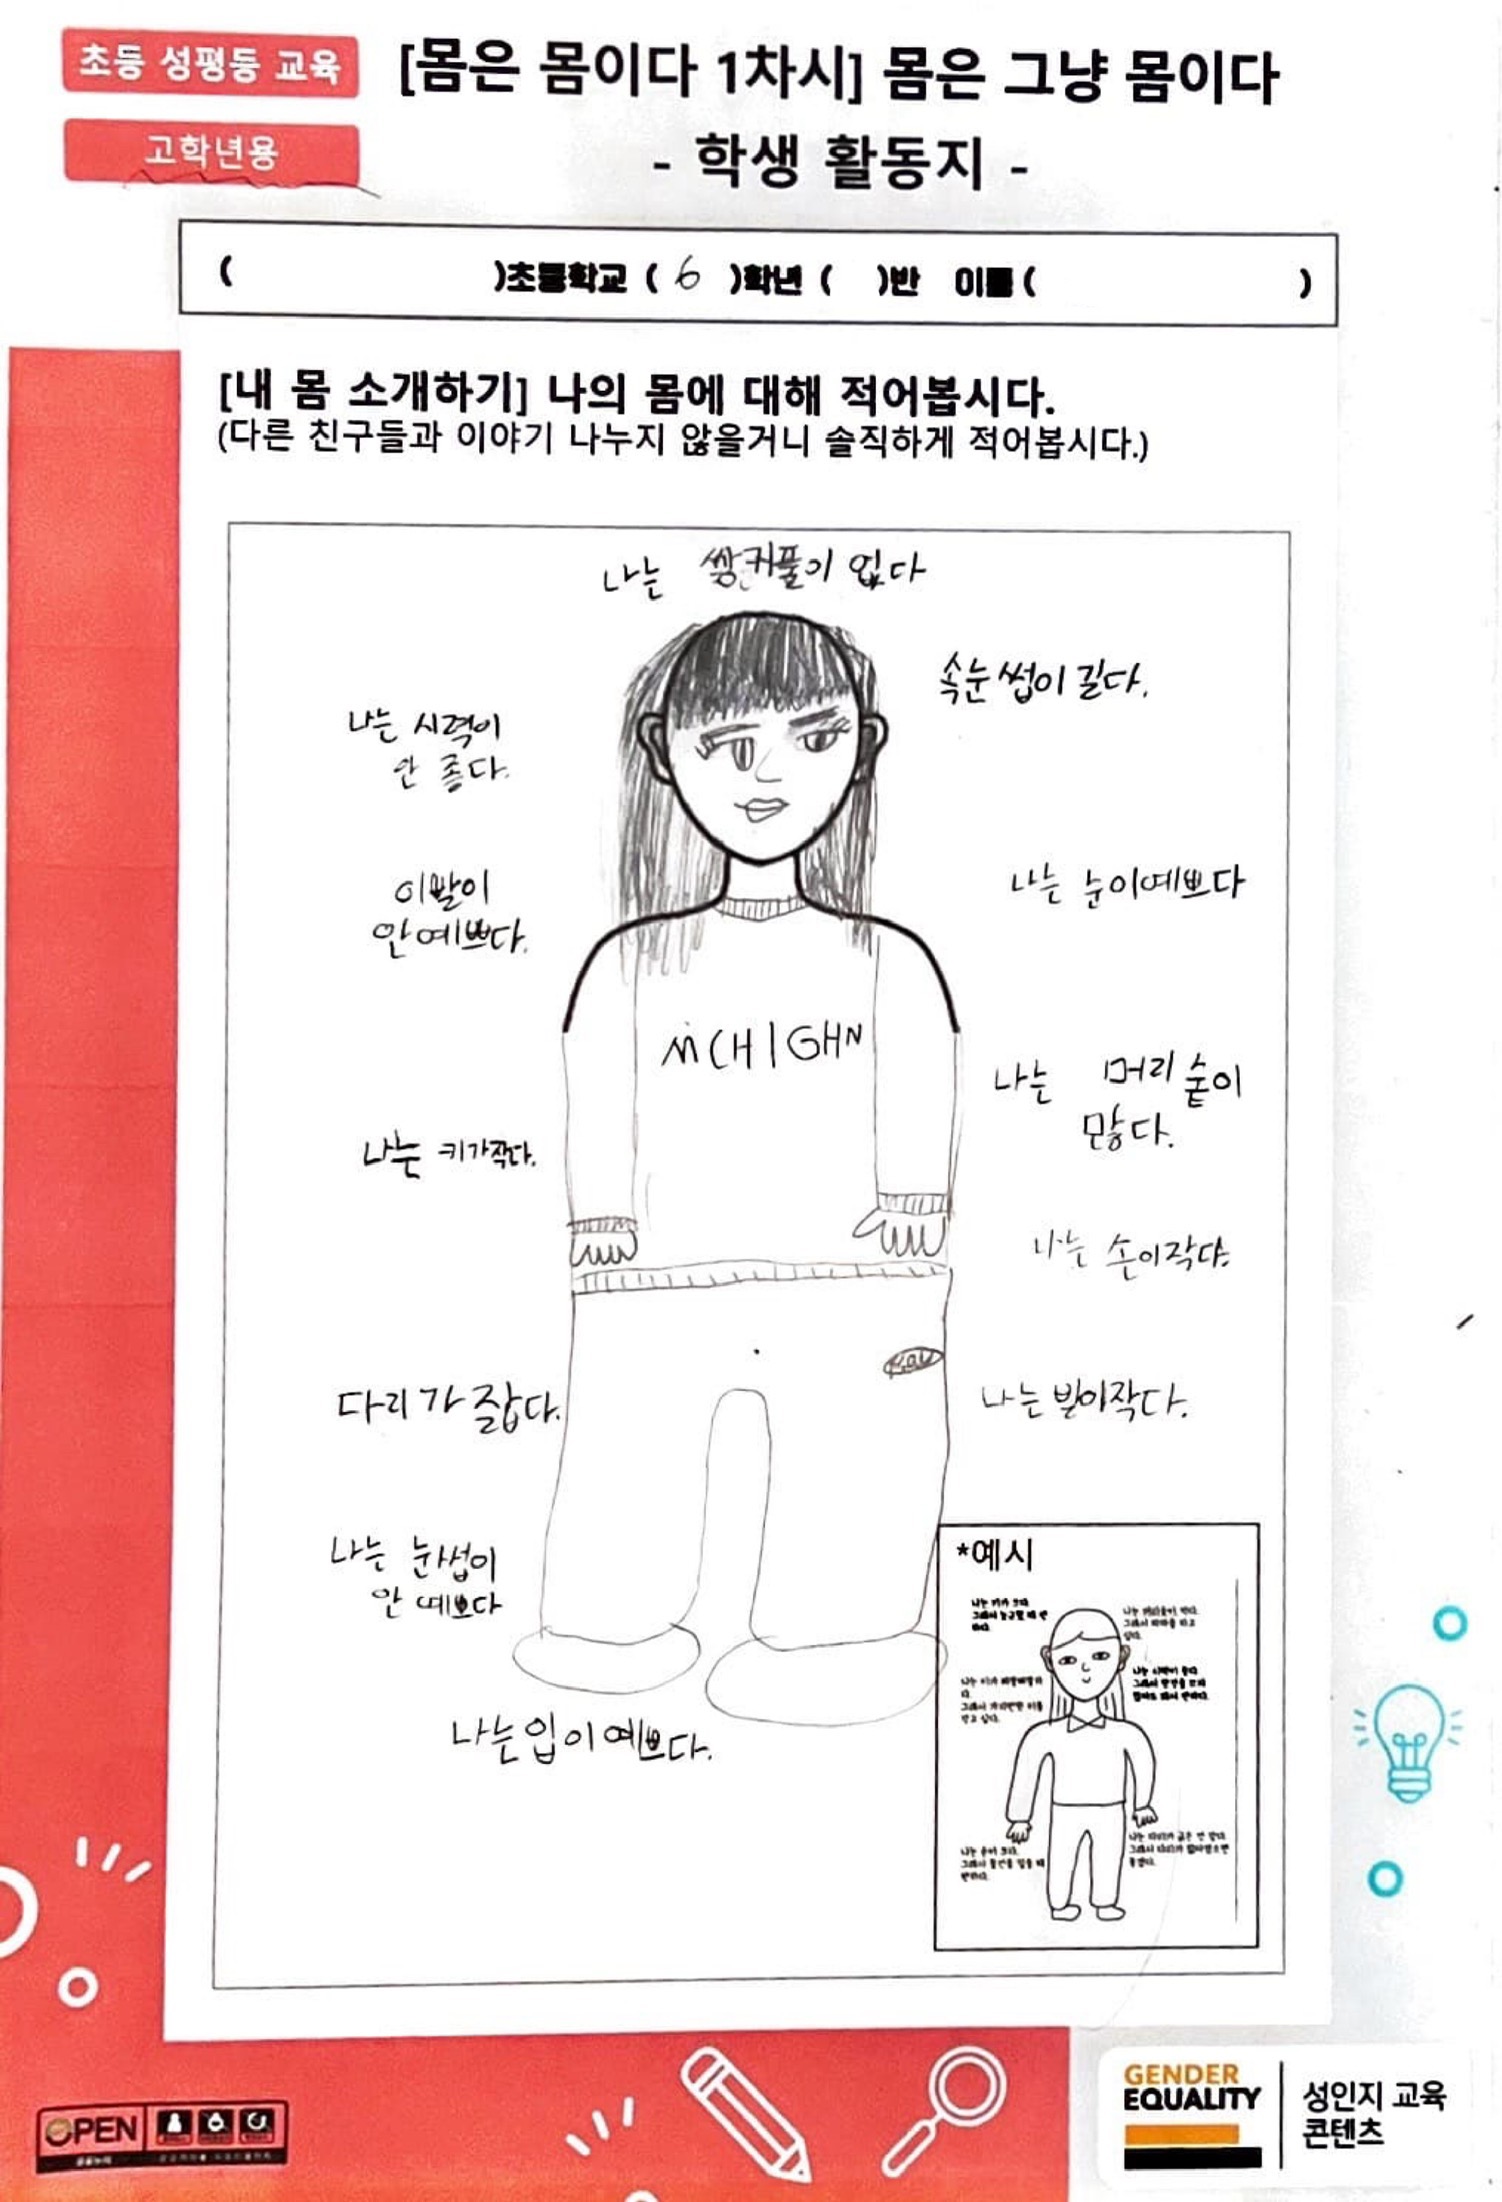 초등 성평등 교육
고학년용
[몸은 몸이다 1차시] 몸은 그냥 몸이다
- 학생 활동지 -
( )초등학교 ( 6 )학년 ( )반 이름 ( )
[내 몸 소개하기] 나의 몸에 대해 적어봅시다.
(다른 친구들과 이야기 나누지 않을거니 솔직하게 적어봅시다.)
나는 쌍커풀이 없다
속눈썹이 길다.
나는 시력이
안 좋다.
이빨이
안예쁘다.
나는 눈이예쁘다
MCHIGHN
나는 머리숱이
많다.
나는 키가작다.
나는 손이작다.
다리가 짧다.
나는 발이작다.
나는 눈썹이
안 예쁘다
나는입이예쁘다.
*예시
나는 키가 크다
나는 시력이 좋다
나는 손이 크다.
OPEN
GENDER
EQUALITY
성인지 교육
콘텐츠